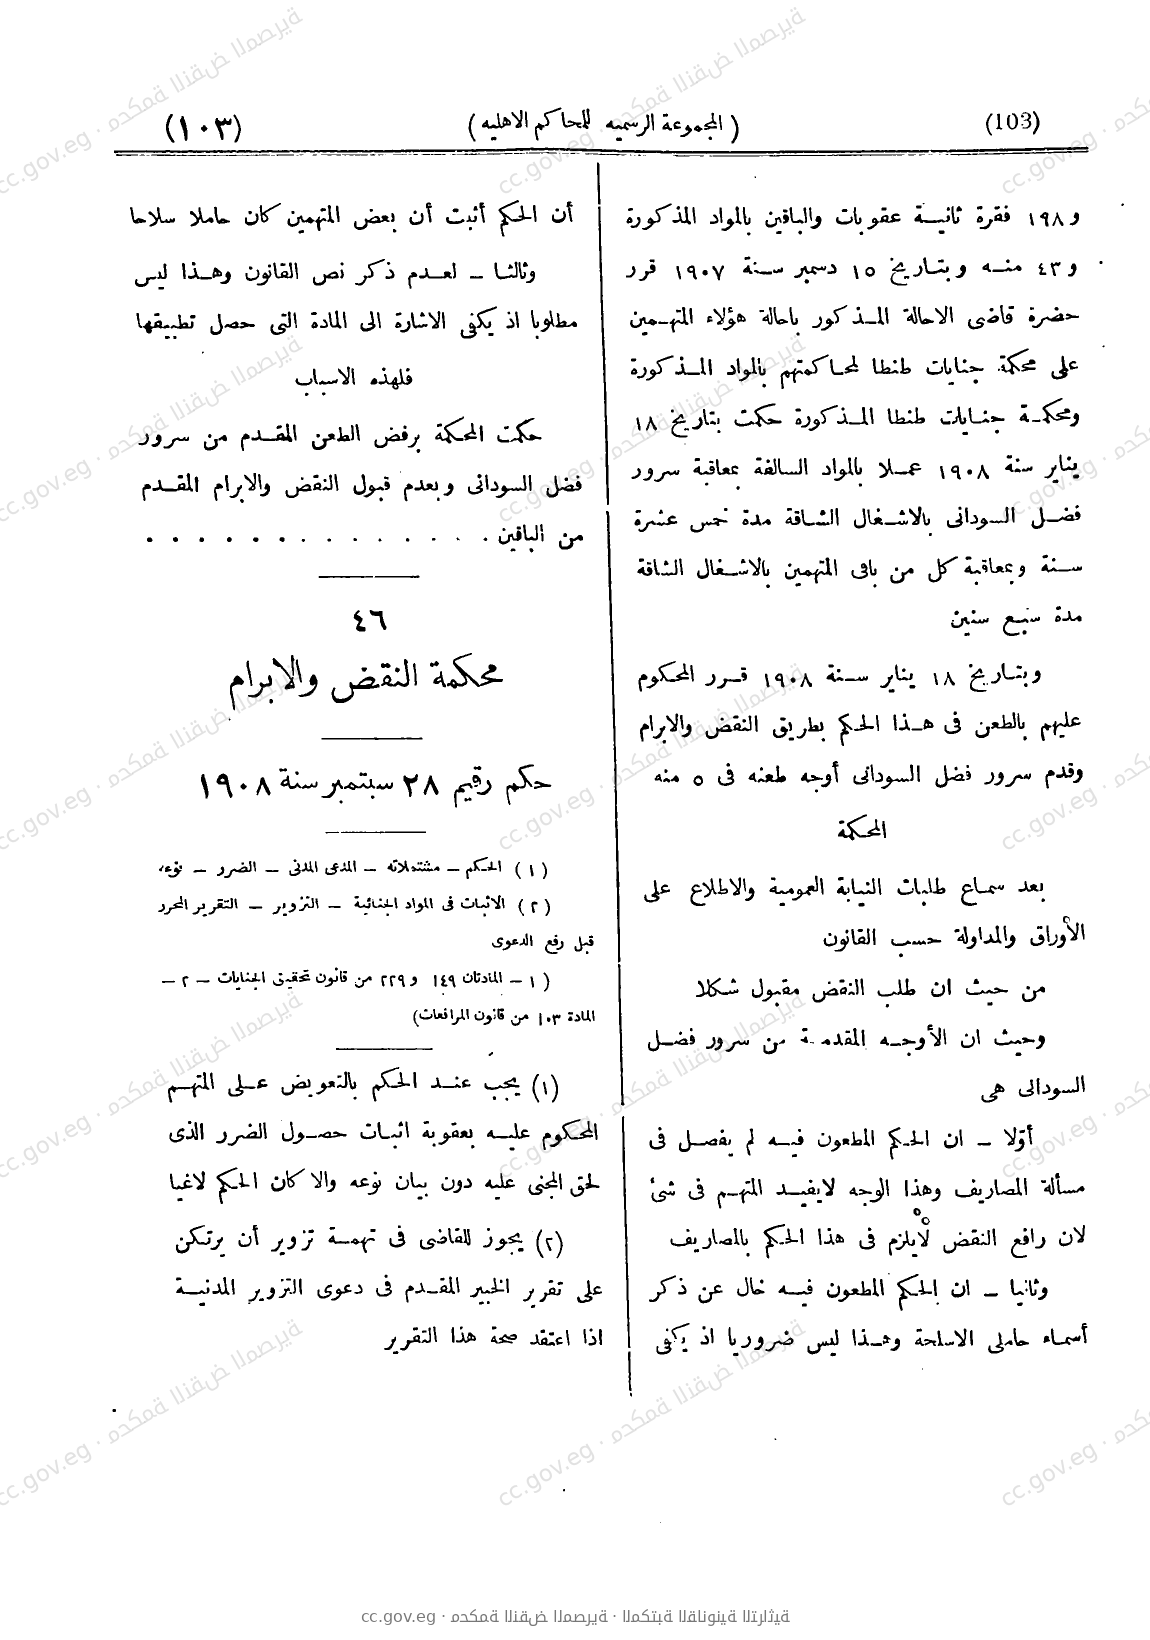 (103)
( المجموعة الرسميه للمحاكم الاهليه )
(١٠٣)
و١٩٨ فقرة ثانيـة عقوبات والباقين بالمواد المذكورة
و٤٣ منـه وبتـاريخ ١٥ دسمبر سـنة ١٩٠٧ قرر
حضرة قاضى الاحالة المـذكور باحالة هؤلاء المتهـمين
على محكمة جنايات طنطا لمحـاكمتهم بالمواد المـذكورة
ومحكمـة جنـايات طنطا المـذكورة حكمت بتاريخ ١٨
يناير سنة ١٩٠٨ عمـلا بالمواد السالفة بمعاقبة سرور
فضـل السـودانى بالاشـغال الشـاقة مدة خمس عشرة
سـنة وبمعاقبة كل من باقى المتهمين بالاشـغال الشاقة
مدة سبـع سنين
وبتـاريخ ١٨ يناير سـنة ١٩٠٨ قـرر المحكوم
عليهم بالطعن فى هـذا الحكم بطريق النقض والابرام
وقدم سرور فضل السودانى أوجه طعنه فى ٥ منه
المحكمة
بعد سمـاع طلبات النيابة العمومية والاطلاع على
الأوراق والمداولة حسب القانون
من حيث ان طلب النقض مقبول شكلا
وحيث ان الأوجـه المقدمة من سرور فضـل
السودانى هى
أوّلا – ان الحكم المطعون فيـه لم يفصـل فى
مسألة المصاريف وهذا الوجه لايفيـد المتهـم فى شئ
لان رافع النقض لايلزم فى هذا الحكم بالمصاريف
وثانيا – ان الحكم المطعون فيـه خال عن ذكر
أسمـاء حاملى الاسلحة وهـذا ليس ضروريا اذ يكفى
أن الحكم أثبت أن بعض المتهمين كان حاملا سلاحا
وثالثـا – لعـدم ذكر نص القانون وهـذا ليس
مطلوبا اذ يكفى الاشارة الى المادة التى حصل تطبيقها
فلهذه الاسباب
حكمت المحكمة برفض الطعن المقـدم من سرور
فضل السودانى وبعدم قبول النقض والابرام المقـدم
من الباقين . . . . . . . . . . . . . .
٤٦
محكمة النقض والابرام
حكم رقيم ٢٨ سبتمبر سنة ١٩٠٨
(١) الحكم – مشتملاته – المدعى المدنى – الضرر – نوعه
(٢) الاثبات فى المواد الجنائية – التزوير – التقرير المحرر
قبل رفع الدعوى
(١ – المادتان ١٤٩ و٢٢٩ من قانون تحقيق الجنايات – ٢ –
المادة ١٠٣ من قانون المرافعات)
(١) يجب عنـد الحكم بالتعويض عـلى المتهـم
المحكوم عليـه بعقوبة اثبـات حصـول الضرر الذى
لحق المجنى عليه دون بيان نوعه والا كان الحكم لاغيا
(٢) يجوز للقاضى فى تهمـة تزوير أن يرتكن
على تقرير الخبير المقـدم فى دعوى التزوير المدنيـة
اذا اعتقد صحة هذا التقرير
cc.gov.eg · محكمة النقض المصرية · المكتبة القانونية التراثية